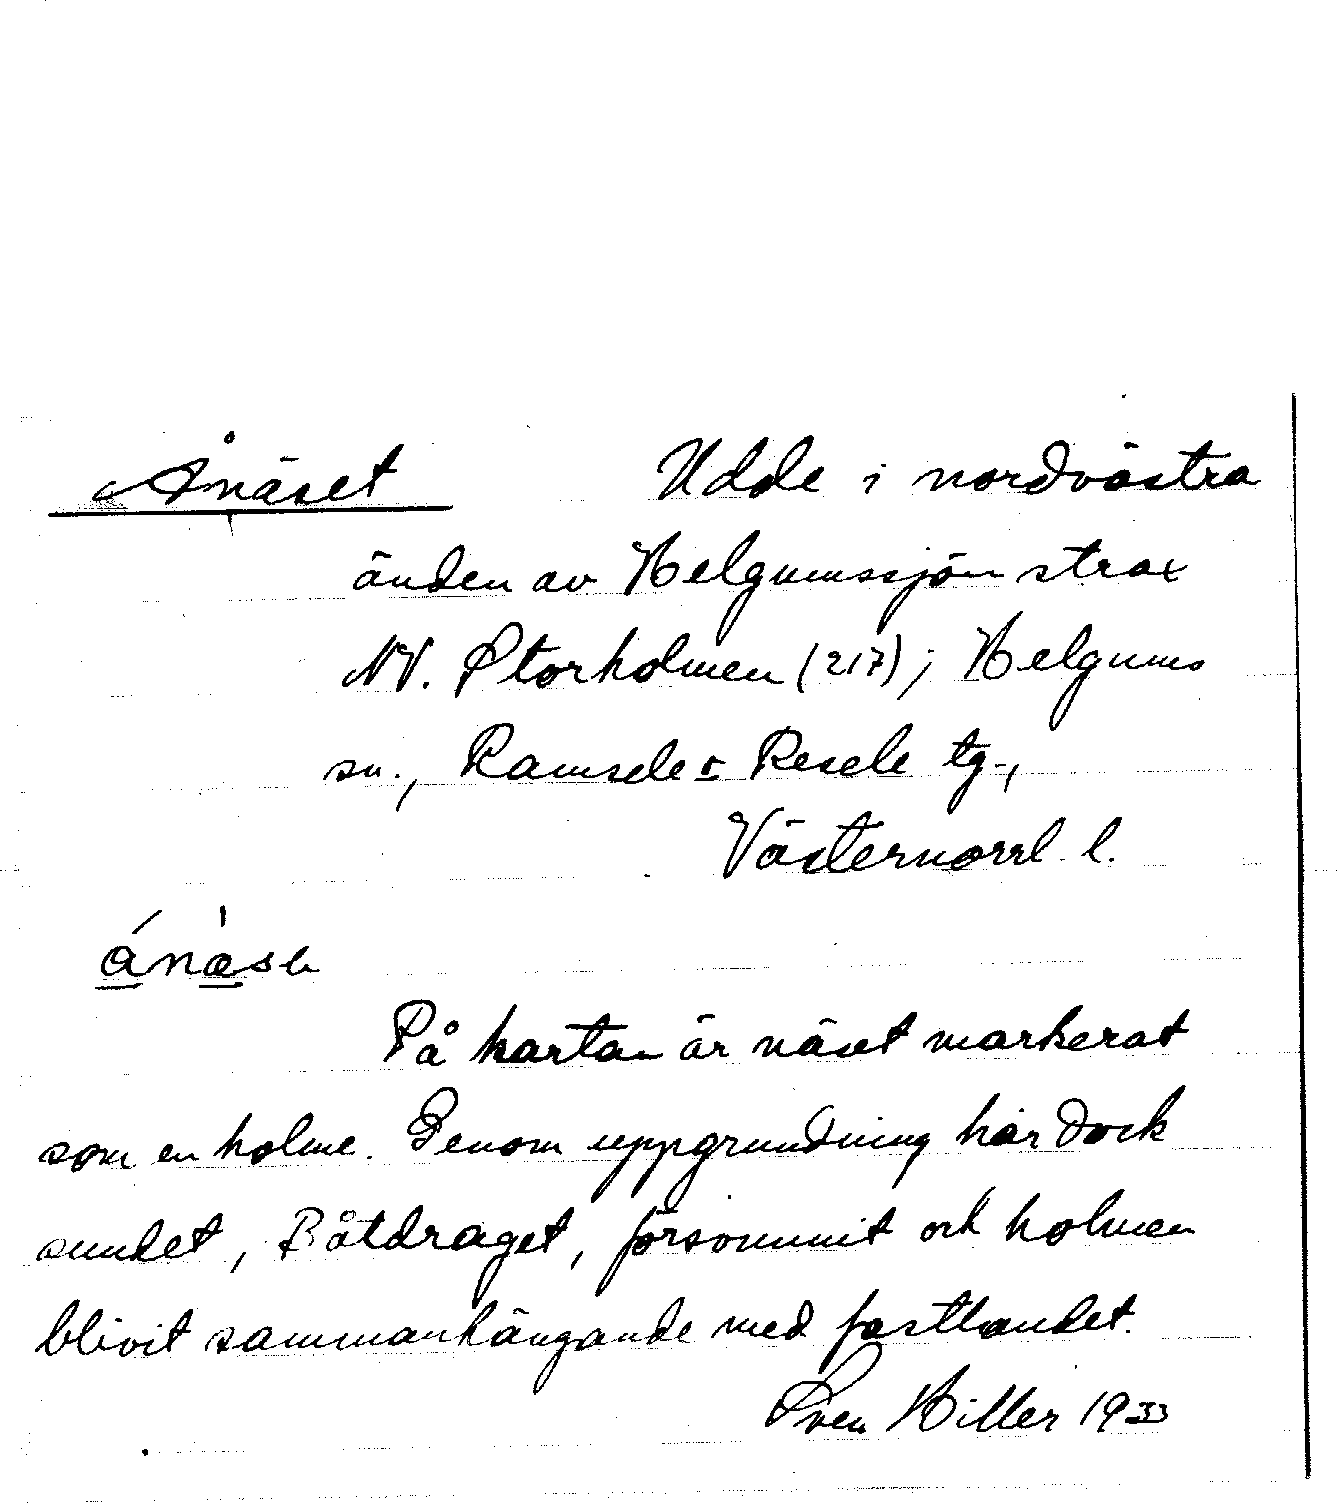 Ånäset Udde i nordvästra
änden av Helgumssjön strax
NV. Storholmen (217); Helgums
sn., Ramsele o Resele tg.,
Västernorrl. l.
På kartan är näset markerat
som en holme. Genom uppgrundning har dock
sundet, Båtdraget, försvunnit och holmen
blivit sammanhängande med fastlandet.
Sven Hiller 1933